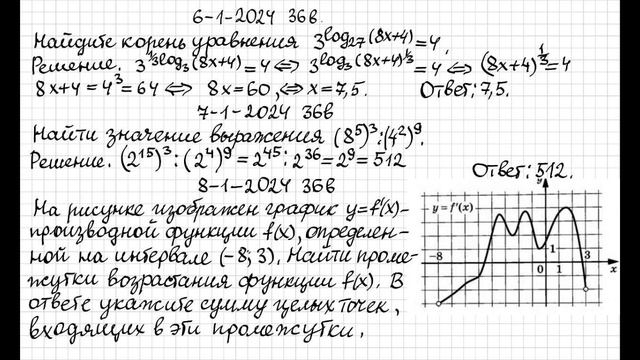 6-1-2024 36в.
Найдите корень уравнения 3^log₂₇(8x+4)=4.
Решение. 3^⅓log₃(8x+4)=4 ⇔ 3^log₃(8x+4)^⅓=4 ⇔ (8x+4)^⅓=4
8x+4=4³=64 ⇔ 8x=60, ⇔ x=7,5. Ответ: 7,5.
7-1-2024 36в
Найти значение выражения (8⁵)³:(4²)⁹.
Решение. (2¹⁵)³:(2⁴)⁹=2⁴⁵:2³⁶=2⁹=512
Ответ: 512.
8-1-2024 36в
На рисунке изображен график y=f'(x)-
производной функции f(x), определен-
ной на интервале (-8; 3). Найти проме-
жутки возрастания функции f(x). В
ответе укажите сумму целых точек,
входящих в эти промежутки.
y
y=f'(x)
1
-8 0 1 3
x